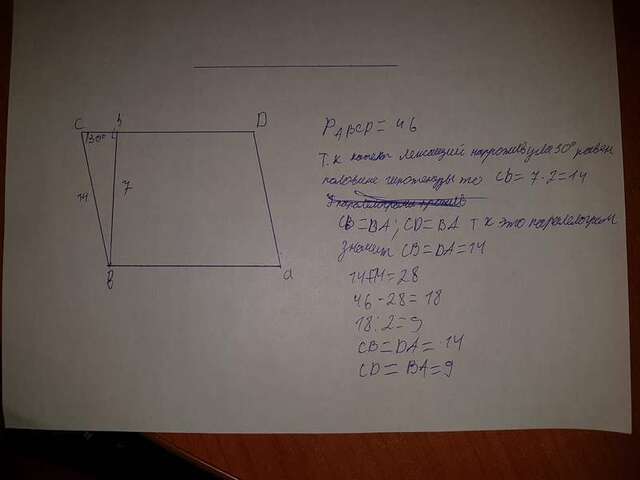 C
h
D
30°
14
7
B
a
P ABCD = 46
Т.к катет лежащий напротив угла 30° равен
половине гипотенузы то CB = 7 · 2 = 14
CB = BA; CD = BA т к это паралелограм
значит CB = DA = 14
14 + 14 = 28
46 - 28 = 18
18 : 2 = 9
CB = DA = 14
CD = BA = 9